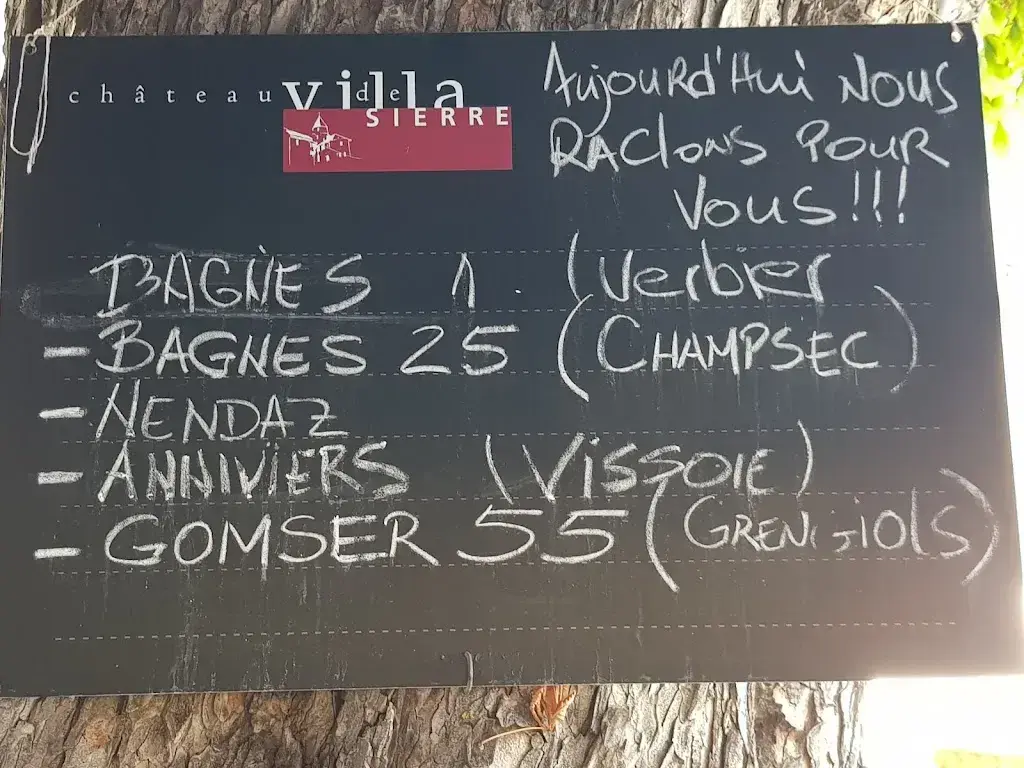 château de villa
SIERRE
Aujourd'Hui NOUS
RAClons POUR
Vous!!!
BAGNES 1 (Verbier
- BAGNES 25 (CHAMPSEC)
- NENDAZ
- ANNIVIERS (VISSOIE)
- GOMSER 55 (GRENGIOLS)